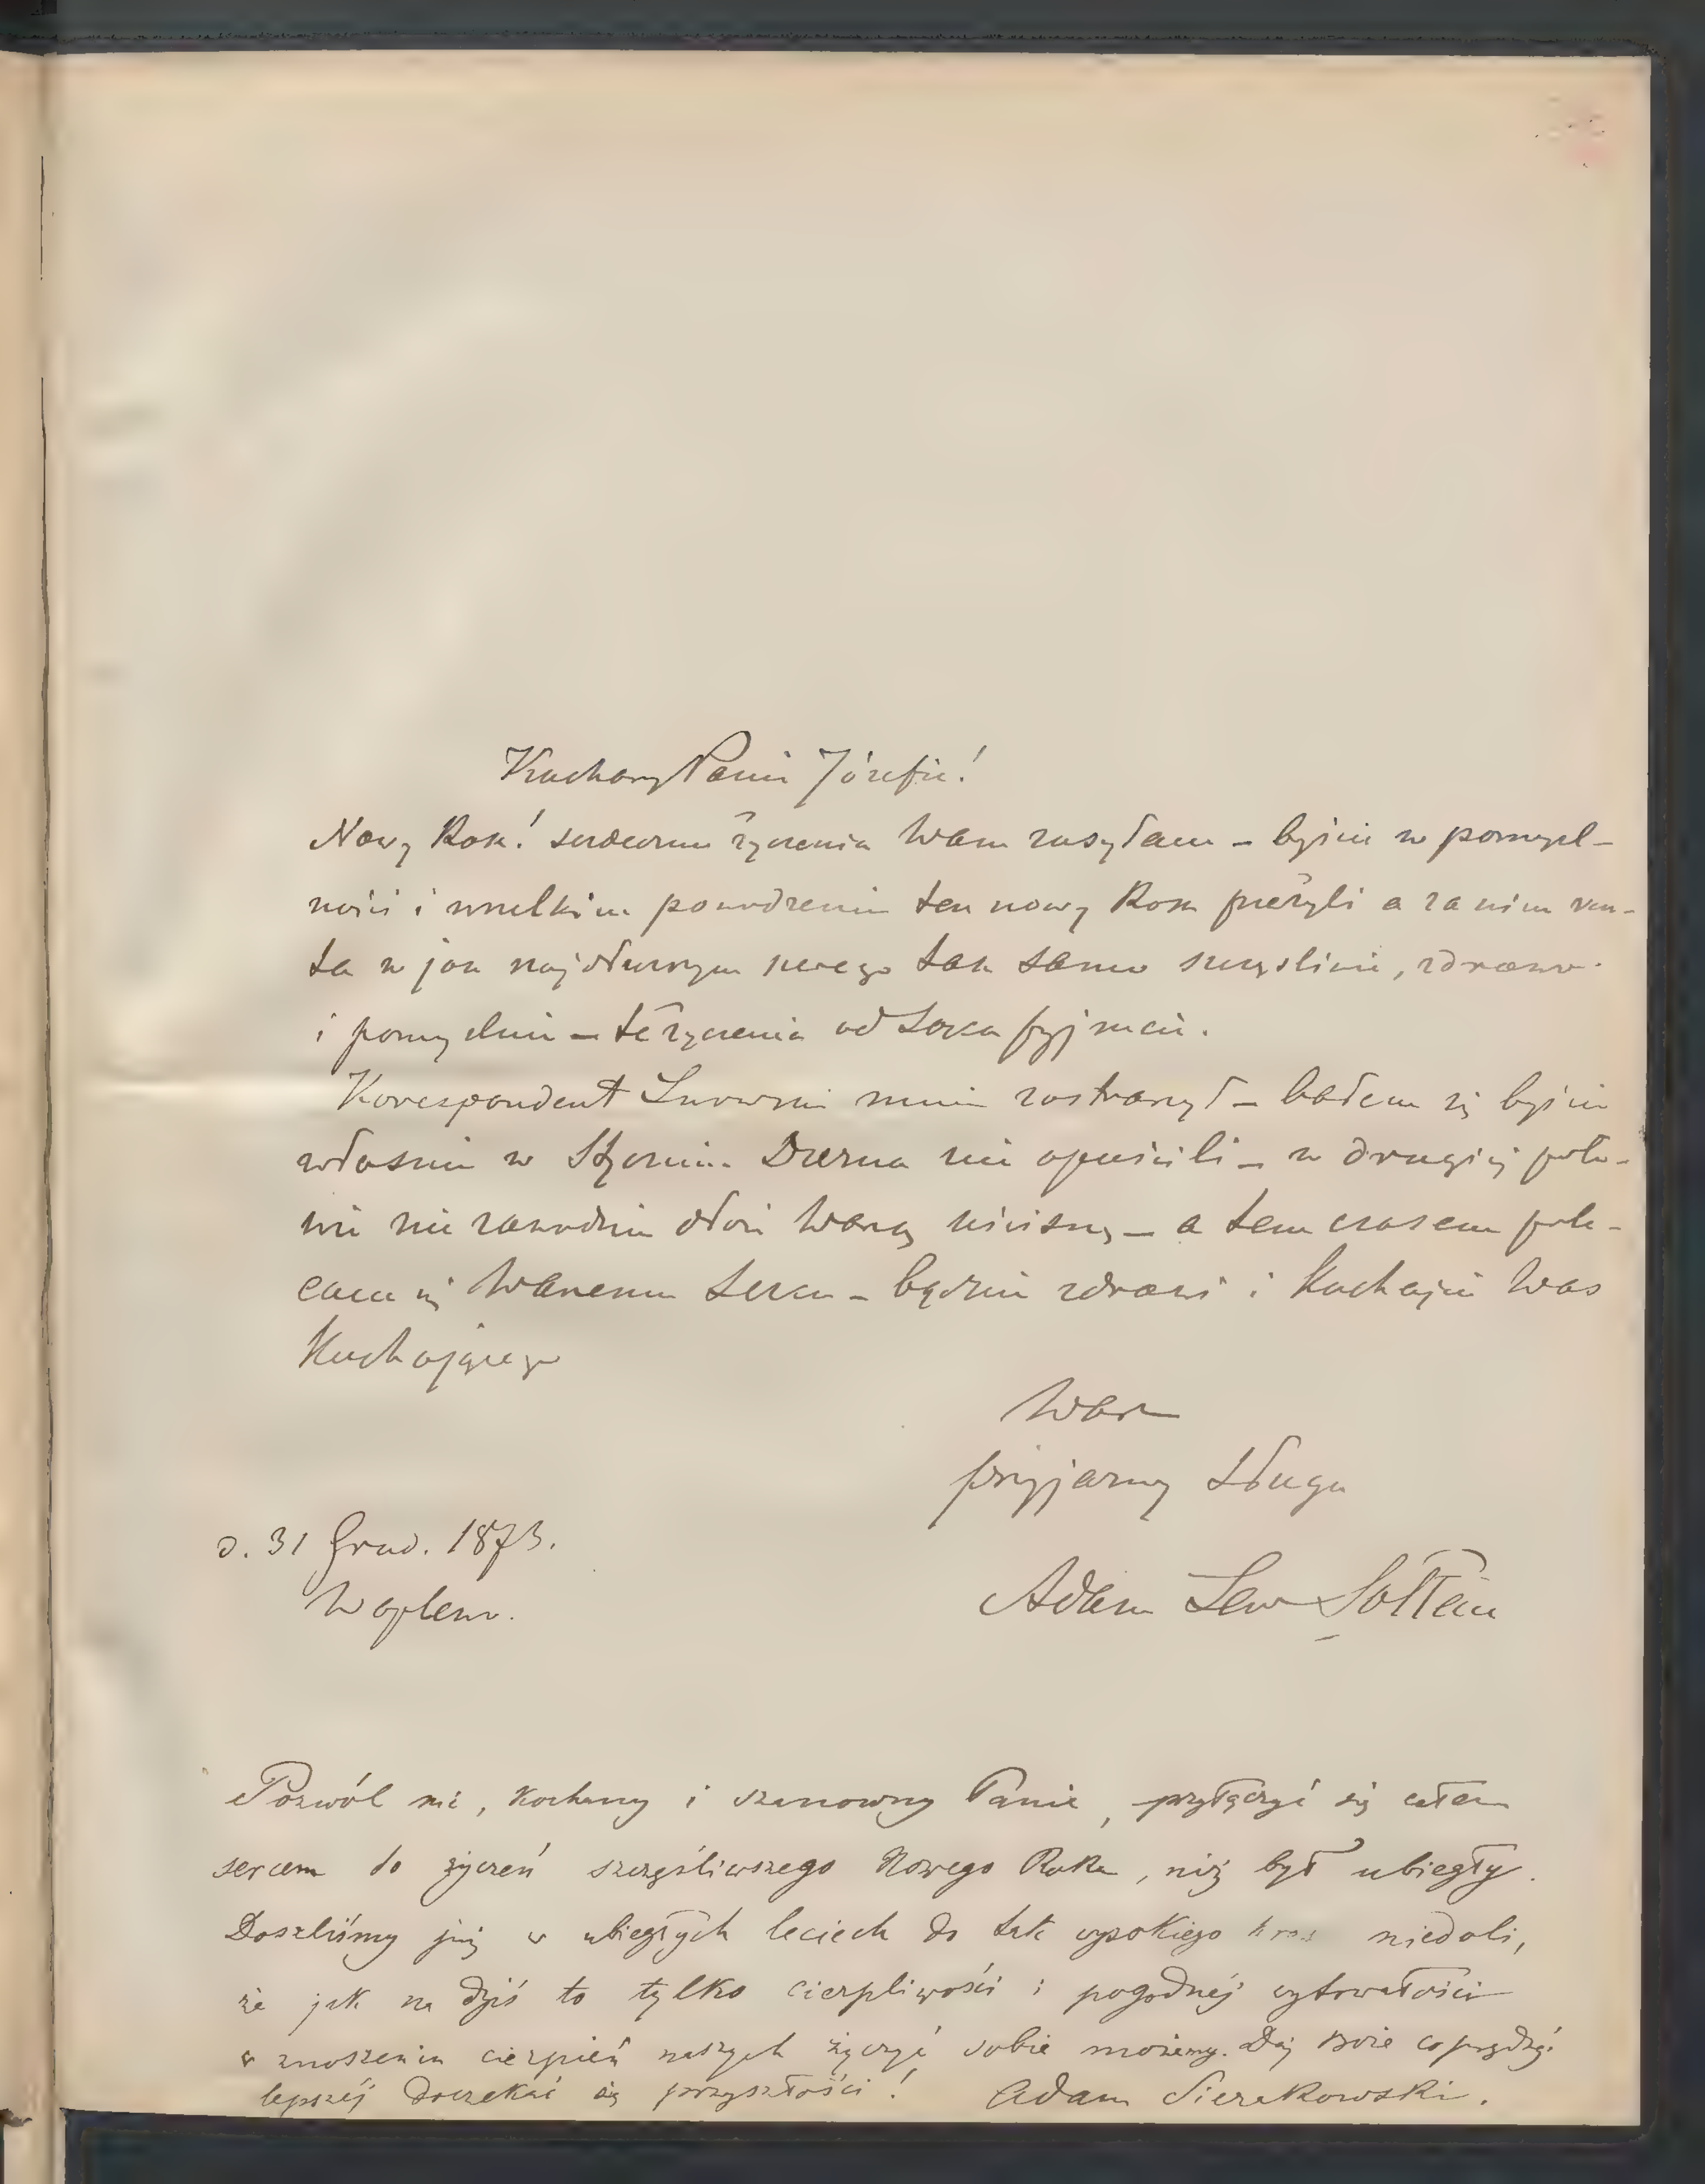 Kochany Panie Józefie!
Nowy Rok! serdeczne życzenia Wam zasyłam – byście w pomyśl-
ności i wszelkim powodzeniu ten nowy Rok przeżyli a za nim
w jak najdłuższym szeregu tak samo szczęśliwie, zdrowo
i pomyślnie – te życzenia od Serca przyjmcie.
Korespondent Lwowski mnie zastraszył – bałem się byście
właśnie w Styczniu Drezna nie opuścili – w drugiej poło-
wie niezawodnie dłoń Waszą uścisnę – a tem czasem pole-
cam się Waszemu Sercu – bądźcie zdrowi i Kochajcie Was
Kochającego
Wasz
przyjazny Sługa
d. 31 Grud. 1873.
Waplewo.
Adam Lew Sołtan
Pozwól mi, kochany i szanowny Panie, przyłączyć się całem
sercem do życzeń szczęśliwszego Nowego Roku, niż był ubiegły.
Doszliśmy już w ubiegłych leciech do tak wysokiego niedoli,
że jak na dziś to tylko cierpliwości i pogodnéj wytrwałości
w znoszeniu cierpień naszych życzyć sobie możemy. Daj Boże co prędzéj
lepszéj doczekać się przyszłości! Adam Sierakowski.